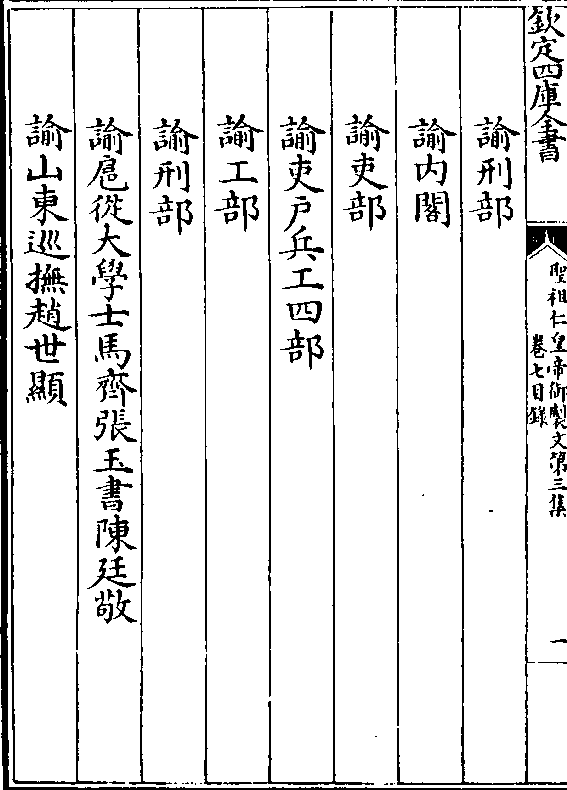 欽定四庫全書
聖祖仁皇帝御製文第三集
卷七目錄
一
諭刑部
諭内閣
諭吏部
諭吏戸兵工四部
諭工部
諭刑部
諭扈從大學士馬齊張玉書陳廷敬
諭山東巡撫趙世顯